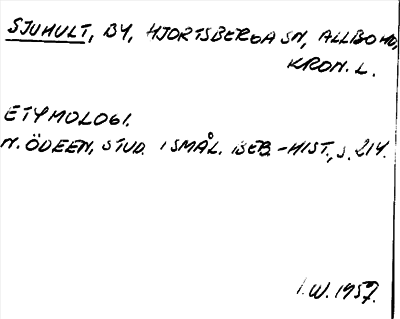 SJUHULT, BY, HJORTSBERGA SN, ALLBO HD,
KRON. L.
ETYMOLOGI.
N. ÖDEEN, STUD. I SMÅL. BEB.-HIST., S. 214.
I.W. 1957.